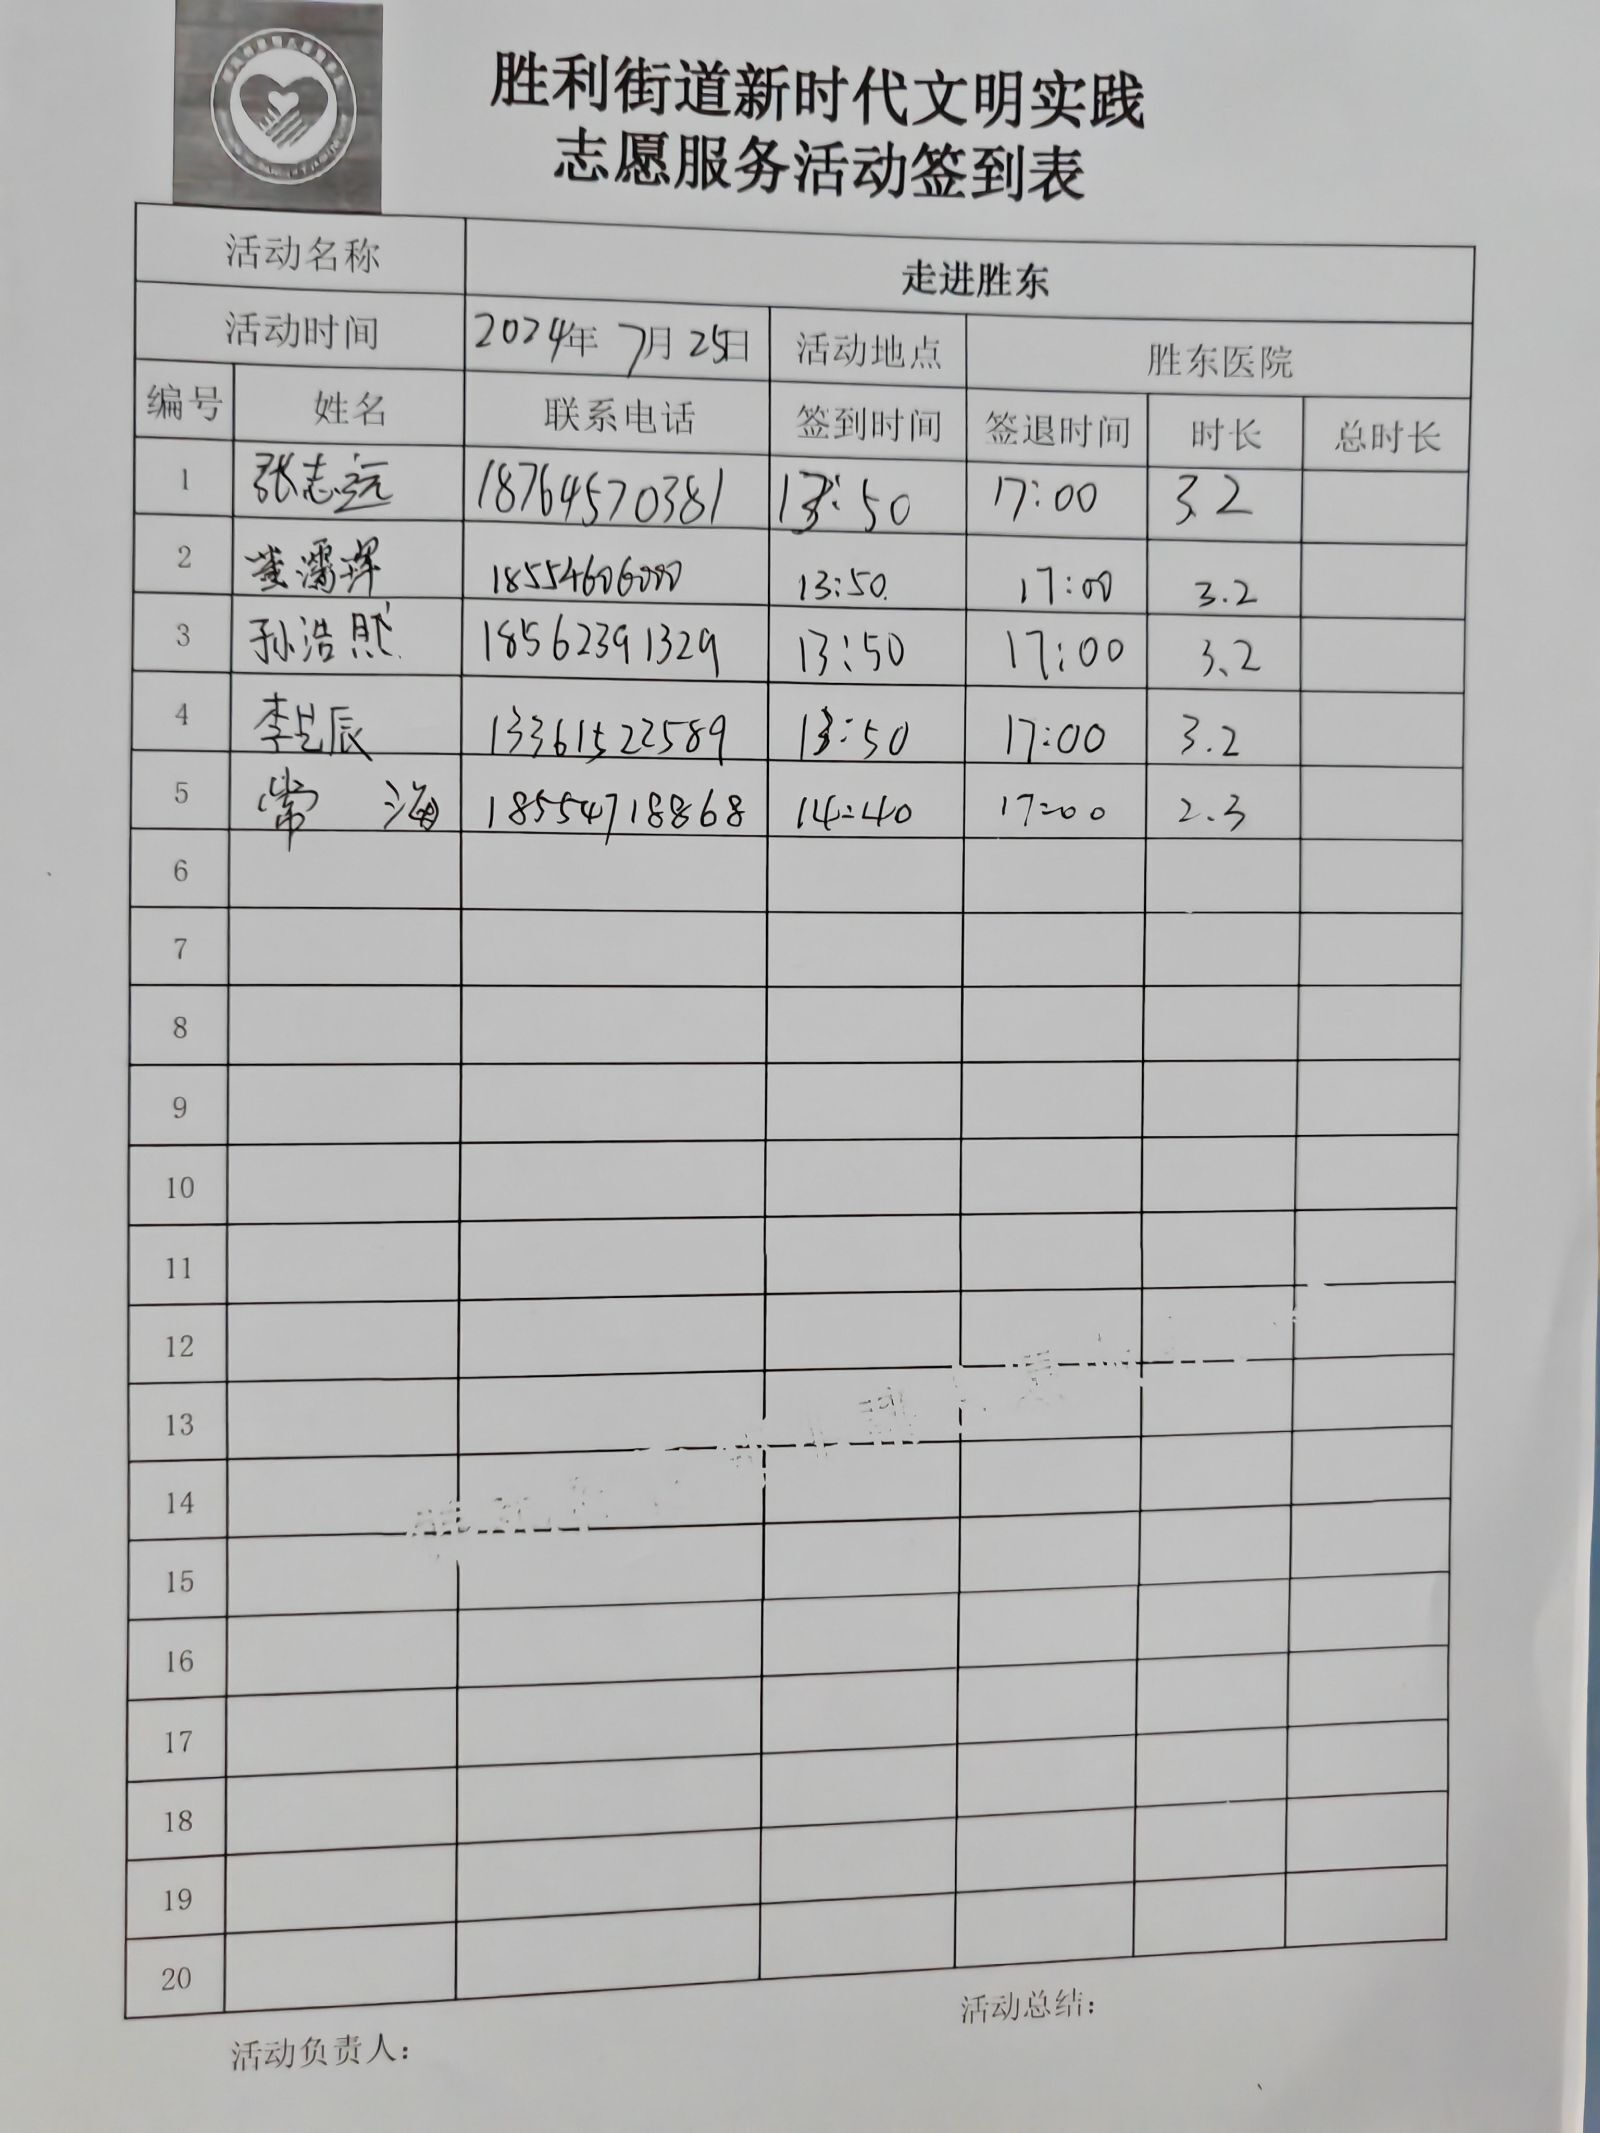 胜利街道新时代文明实践
志愿服务活动签到表
活动名称 走进胜东
活动时间 2024年 7月 25日 活动地点 胜东医院
编号 姓名 联系电话 签到时间 签退时间 时长 总时长
1 张志远 18764570381 13:50 17:00 3.2
2 18554606000 13:50. 17:00 3.2
3 孙浩然 18562391329 13:50 17:00 3.2
4 李昱辰 13361522589 13:50 17:00 3.2
5 常海 18554718868 14:40 17:00 2.3
6
7
8
9
10
11
12
13
14
15
16
17
18
19
20
活动总结：
活动负责人：